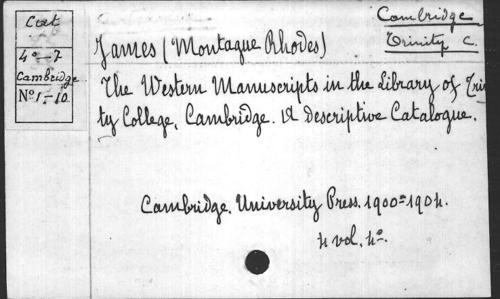 Cat
4º-7
Cambridge
Nº 1-10
Cambridge
Trinity C.
James (Montague Rhodes)
The Western Manuscripts in the Library of Trini
ty College, Cambridge. A Descriptive Catalogue.
Cambridge. University Press. 1900=1904.
4 vol. 4º.